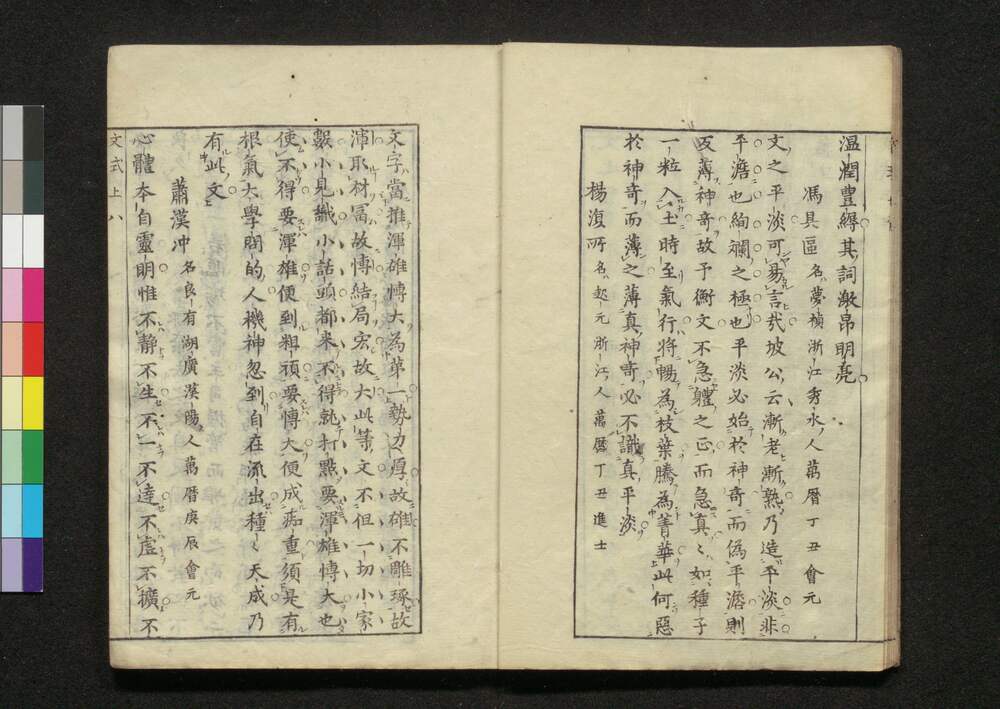 溫潤豐縟其詞漵昻明亮
馮具區 名夢禎浙江秀水人萬曆丁丑會元
文之平淡可易言哉坡公云漸老漸熟乃造平淡非
平澹也絢斕之極也平淡必始於神奇而偽平澹則
反薄神奇故予衡文不急軆之正而急真〻如種子
一粒入土時至氣行將暢為枝葉騰為菁華此何惡
於神奇而薄之薄真神奇必不識真平淡
楊復所 名起元浙江人萬曆丁丑進士
文字當推渾雄慱大為第一勢力厚故雄不雕琢故
渾取材冨故慱結局宏故大此等文不但一切小家
數小見識小話頭都來不得就打點要渾雄慱大也
使不得要渾雄便到粗頑要慱大便成痴重須是有
根氣大學問的人機神忽到自在流出種〻天成乃
有此文
蕭漢冲 名良有湖廣漢陽人萬曆庚辰會元
心體本自靈明惟不静不生不一不達不虛不擴不
文式上 八